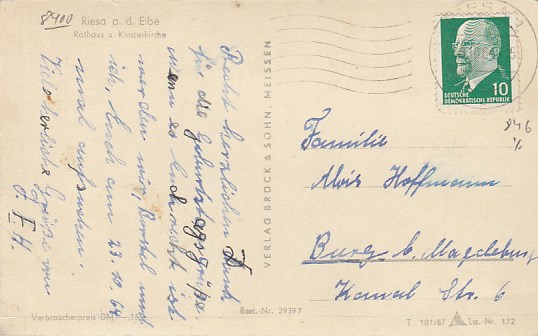 8400
Riesa a. d. Elbe
Rathaus u. Klosterkirche
Recht herzlichen Dank
für die Geburtstagsgrüße.
Wenn es Euch recht ist
werden wir, und
ich, Euch am 23.10.64
mal aufsuchen.
Viele herzliche Grüße von
F. H.
Verbraucherpreis DM -,15
Best.-Nr. 29397
VERLAG BRÜCK & SOHN, MEISSEN
10
DEUTSCHE
DEMOKRATISCHE REPUBLIK
846
Familie
Alois Hoffmann
Burg b. Magdeburg
Kanal Str. 6
T 107/57 Liz.-Nr. 172